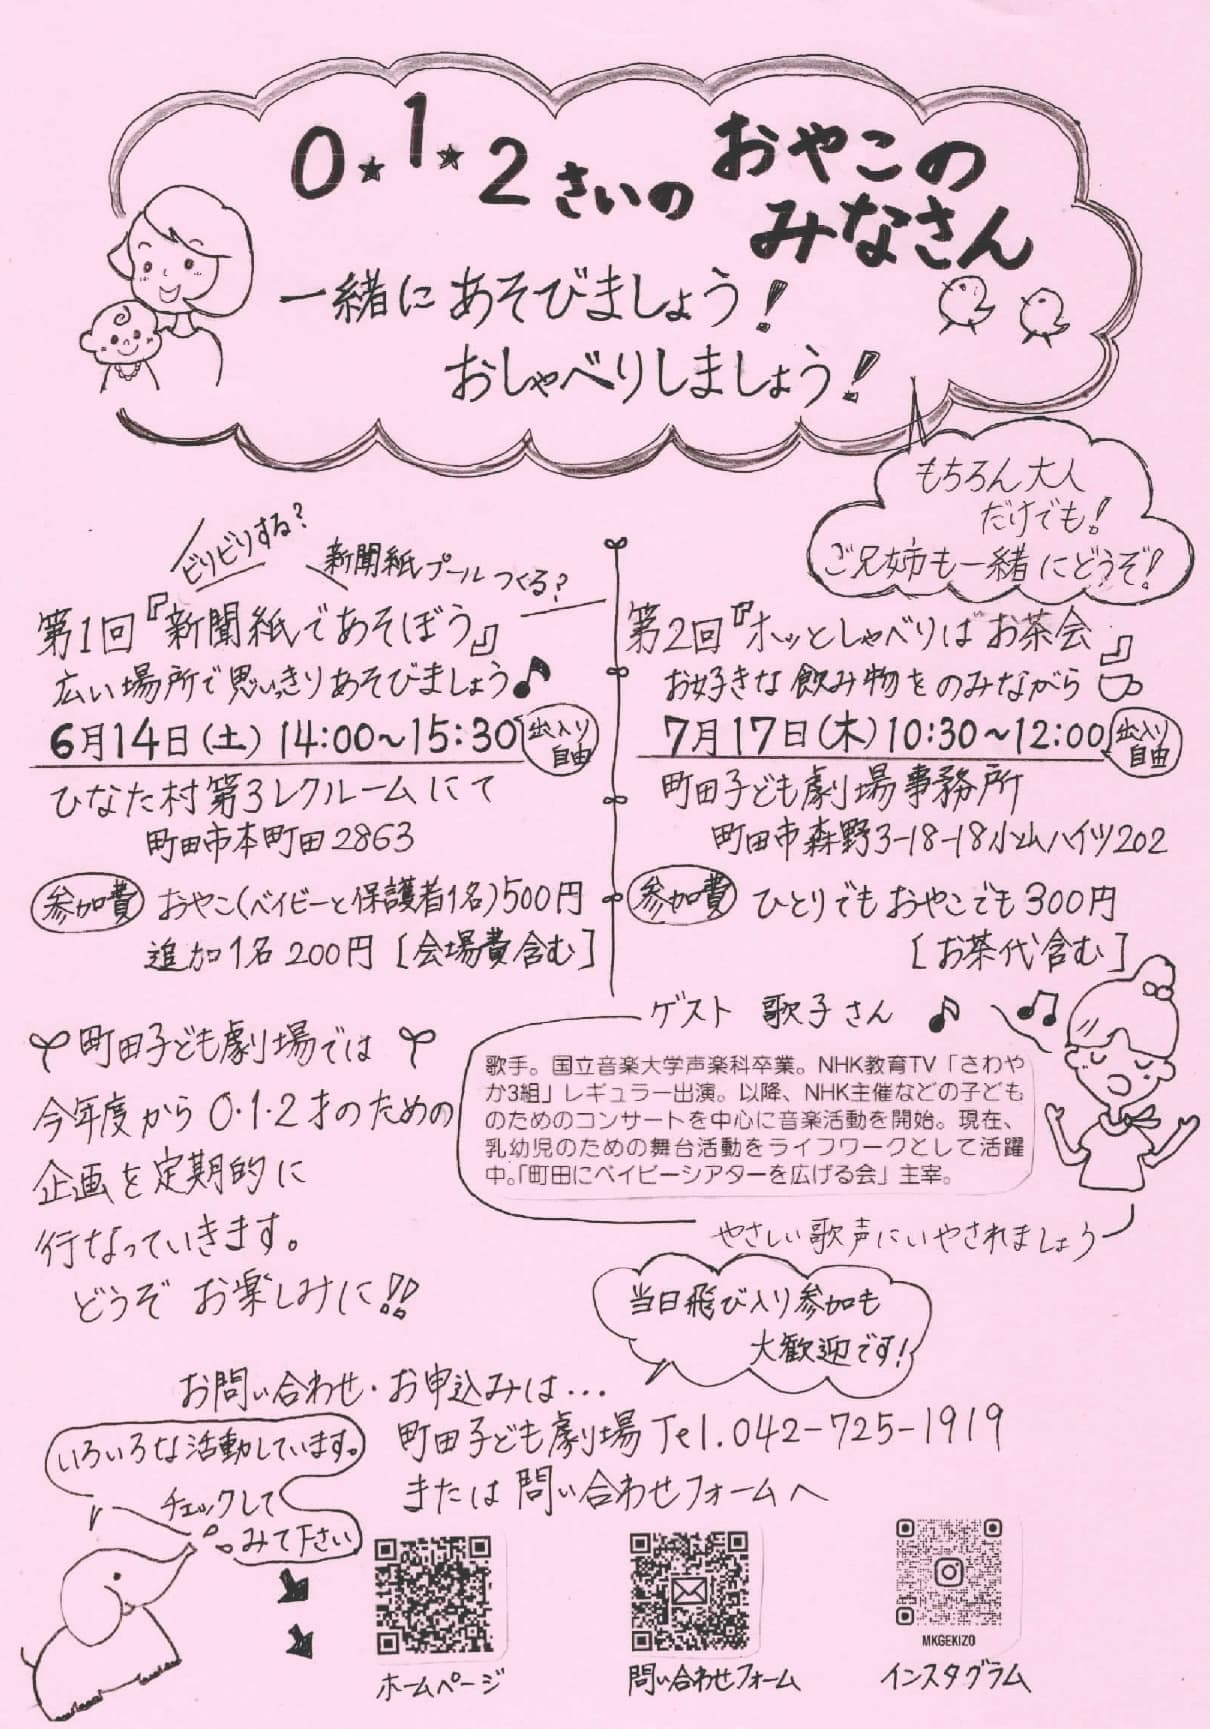 0★1★2さいの
おやこの
みなさん
一緒にあそびましょう!
おしゃべりしましょう!
もちろん大人
だけでも!
ご兄姉も一緒にどうぞ!
ビリビリする?
新聞紙プールつくる?
第1回『新聞紙であそぼう』
広い場所で思いっきりあそびましょう♪
6月14日(土) 14:00~15:30
出入り
自由
ひなた村第3レクルームにて
町田市本町田2863
参加費 おやこ(ベイビーと保護者1名)500円
追加1名200円[会場費含む]
第2回『ホッとしゃべりば お茶会』
お好きな飲み物をのみながら
7月17日(木)10:30~12:00
出入り
自由
町田子ども劇場事務所
町田市森野3-18-18小山ハイツ202
参加費 ひとりでもおやこでも300円
[お茶代含む]
町田子ども劇場では
今年度から0・1・2才のための
企画を定期的に
行なっていきます。
どうぞお楽しみに!!
ゲスト 歌子さん ♪ ♫
歌手。国立音楽大学声楽科卒業。NHK教育TV「さわや
か3組」レギュラー出演。以降、NHK主催などの子ども
のためのコンサートを中心に音楽活動を開始。現在、
乳幼児のための舞台活動をライフワークとして活躍
中。「町田にベイビーシアターを広げる会」主宰。
やさしい歌声にいやされましょう
当日飛び入り参加も
大歓迎です!
お問い合わせ・お申込みは...
町田子ども劇場 Tel.042-725-1919
または 問い合わせフォームへ
いろいろな活動しています。
チェックして
みて下さい
MKGEKIZO
ホームページ
問い合わせフォーム
インスタグラム